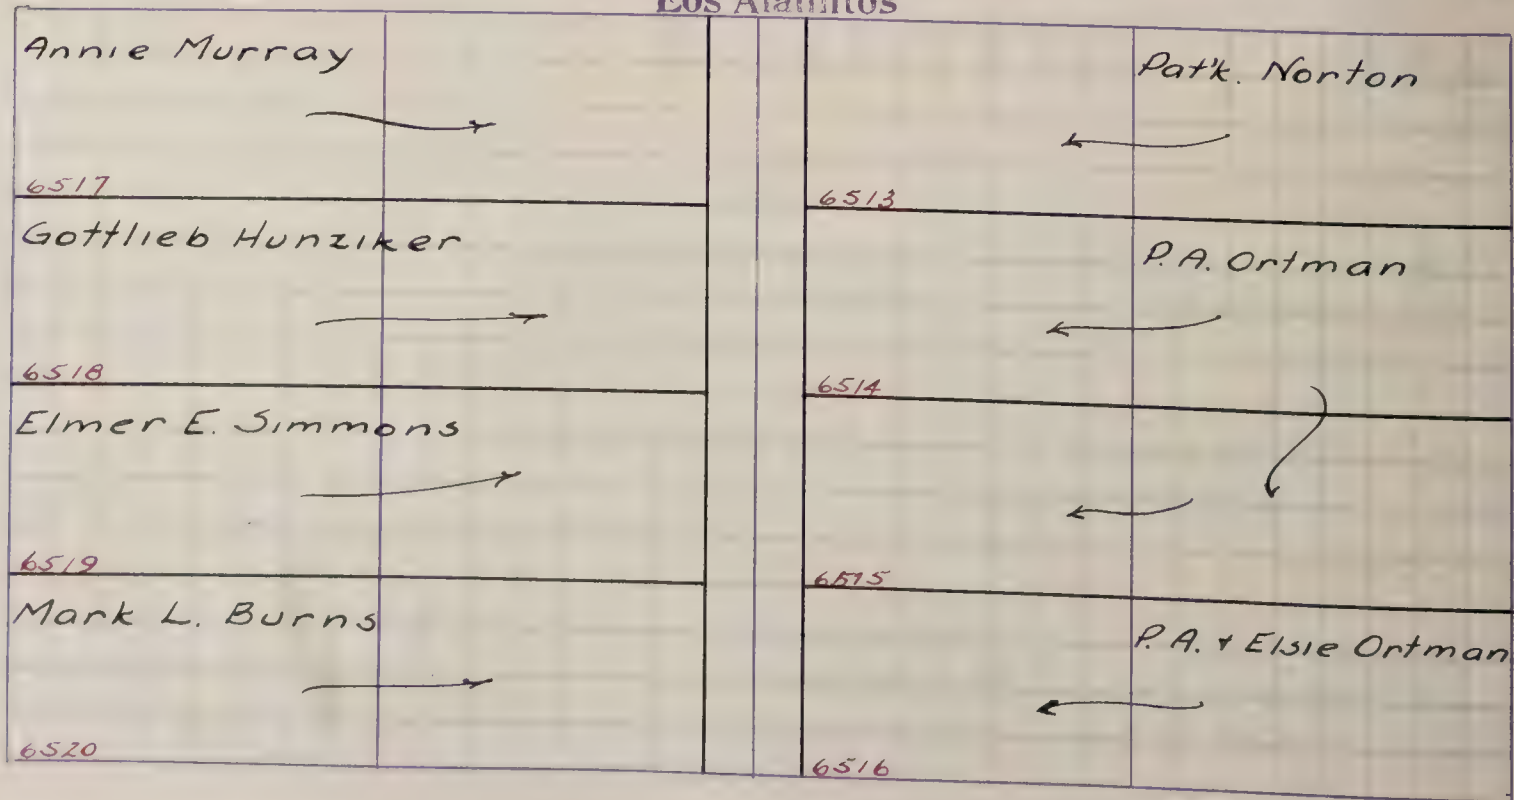 Los Alamitos
Annie Murray
6517
Gottlieb Hunziker
6518
Elmer E. Simmons
6519
Mark L. Burns
6520
Pat'k. Norton
6513
P. A. Ortman
6514
6515
P. A. & Elsie Ortman
6516